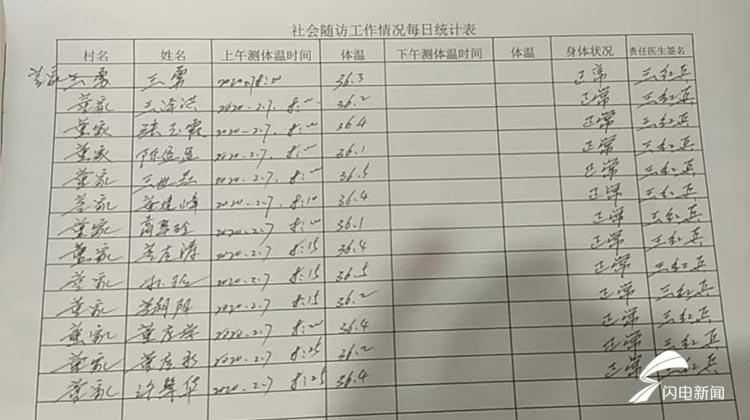 社会随访工作情况每日统计表
村名 姓名 上午测体温时间 体温 下午测体温时间 体温 身体状况 责任医生签名
董家 王勇 2020.2.7 8:00 36.3 正常 王红兵
董家 2020.2.7. 8:00 36.2 正常 王红兵
董家 张玉霞 2020.2.7. 8:00 36.4 正常 王红兵
董家 2020.2.7. 8:00 36.1 正常 王红兵
董家 2020.2.7. 8:00 36.5 正常 王红兵
董家 董建峰 2020.2.7. 8:10 36.4 正常 王红兵
董家 2020.2.7. 8:10 36.1 正常 王红兵
董家 2020.2.7 8:15 36.4 正常 王红兵
董家 2020.2.7 8:15 36.5 正常 王红兵
董家 2020.2.7 8:15 36.2 正常 王红兵
董家 2020.2.7 8:20 36.4 正常 王红兵
董家 2020.2.7 8:25 36.2 正常 王红兵
董家 许翠华 2020.2.7 8:25 36.4 正常 王红兵
闪电新闻